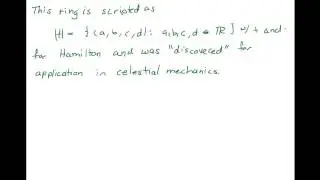 This ring is scripted as
ℍ = { (a, b, c, d) : a, b, c, d ∈ ℝ } w/ + and ·
for Hamilton and was "discovered" for
application in celestial mechanics.